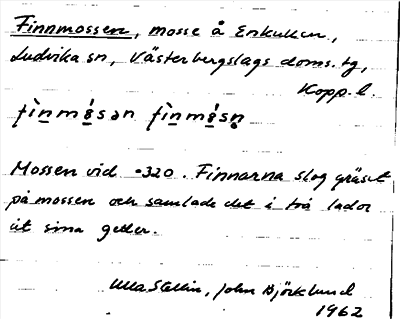 Finnmossen, mosse å Enkullen,
Ludvika sn, Västerbergslags doms. tg,
Kopp. l.
fìnmǻsən fìnmǻsn̥
Mossen vid -320. Finnarna slog gräset
på mossen och samlade det i två lador
åt sina getter.
Ulla Stellin, John Björklund
1962